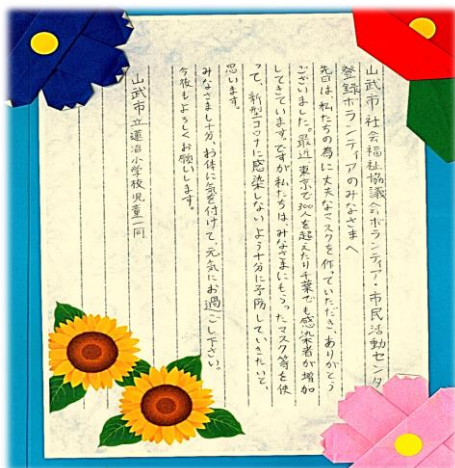 山武市社会福祉協議会ボランティア・市民活動センター
登録ボランティアのみなさまへ
先日は私たちの為に丈夫なマスクを作っていただき、ありがとう
ございました。最近、東京で300人を超えたり千葉でも感染者が増加
してきています。ですが私たちはみなさまにもらったマスク等を使
って、新型コロナに感染しないよう十分に予防していきたいと、
思います。
みなさまも十分、お体に気を付けて、元気にお過ごし下さい。
今後もよろしくお願いします。
山武市立蓮沼小学校児童一同